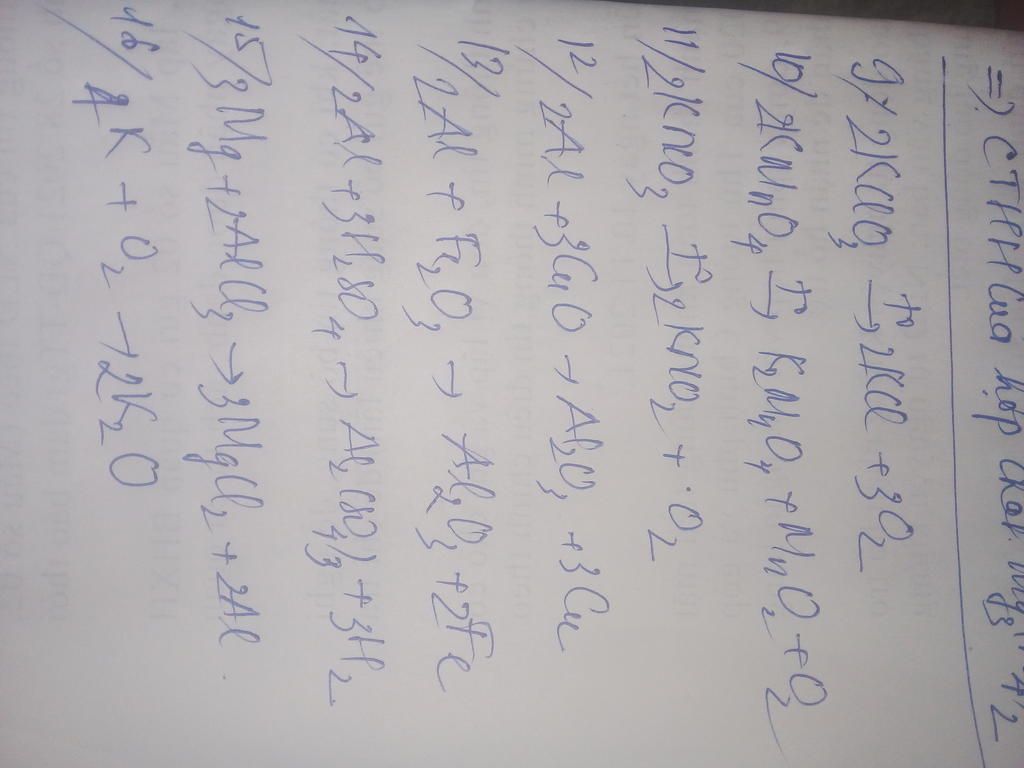 =) CTHH Của hợp chất Mg3P2
9/ 2KClO3 -t°-> 2KCl + 3O2
10/ 2KMnO4 -t°-> K2MnO4 + MnO2 + O2
11/ 2KNO3 -t°-> 2KNO2 + O2
12/ 2Al + 3CuO → Al2O3 + 3Cu
13/ 2Al + Fe2O3 → Al2O3 + 2Fe
14/ 2Al + 3H2SO4 → Al2(SO4)3 + 3H2
15/ 3Mg + 2AlCl3 → 3MgCl2 + 2Al
16/ 4K + O2 → 2K2O